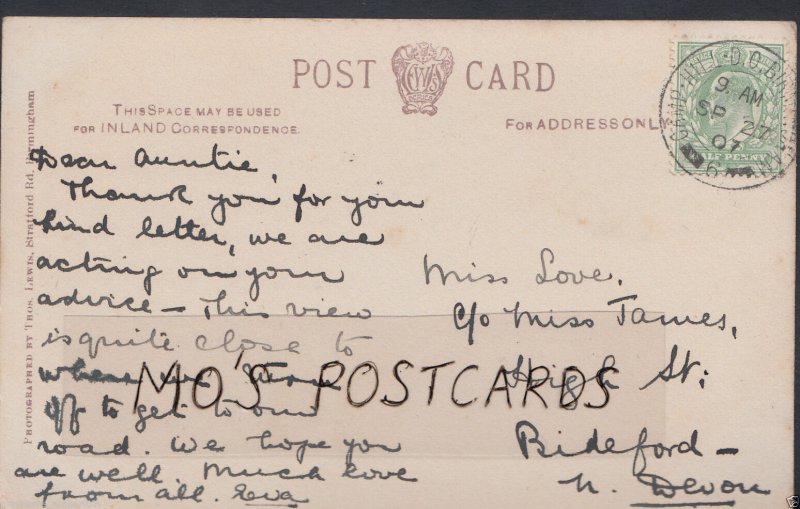 POST CARD
LEWIS
THIS SPACE MAY BE USED
FOR INLAND CORRESPONDENCE.
FOR ADDRESS ONLY
HALF PENNY
9. AM
SP 27
07
PHOTOGRAPHED BY THOS. LEWIS, Stratford Rd. Birmingham
Dear Auntie,
Thank you for your
kind letter, we are
acting on your
advice — This view
is quite close to
where we
off to get to our
road. We hope you
are well. Much love
from all. Eva
Miss Love.
c/o Miss James,
High St:
Bideford —
N. Devon
MO'S POSTCARDS